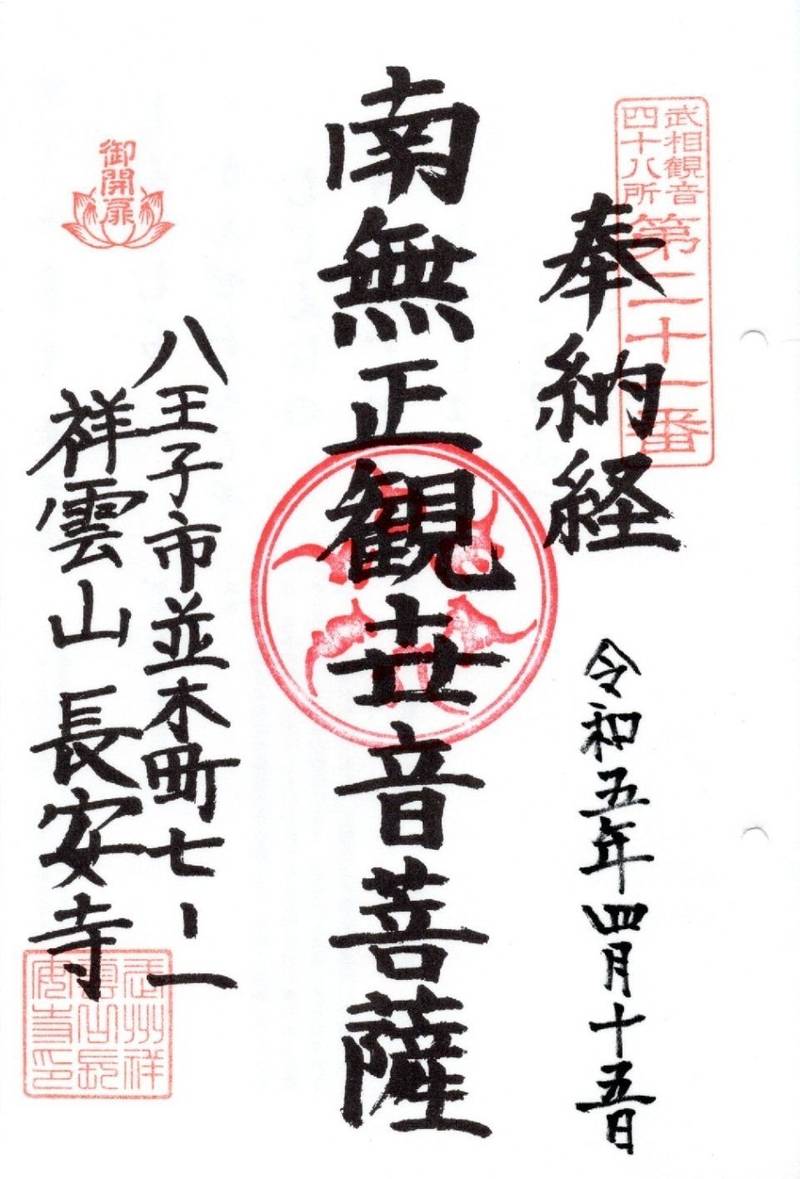 武相観音
四十八所
第二十一番
奉納経
令和五年四月十五日
南無正観世音菩薩
御開扉
八王子市並木町七ー一
祥雲山 長安寺
武州祥
雲山長
安寺印